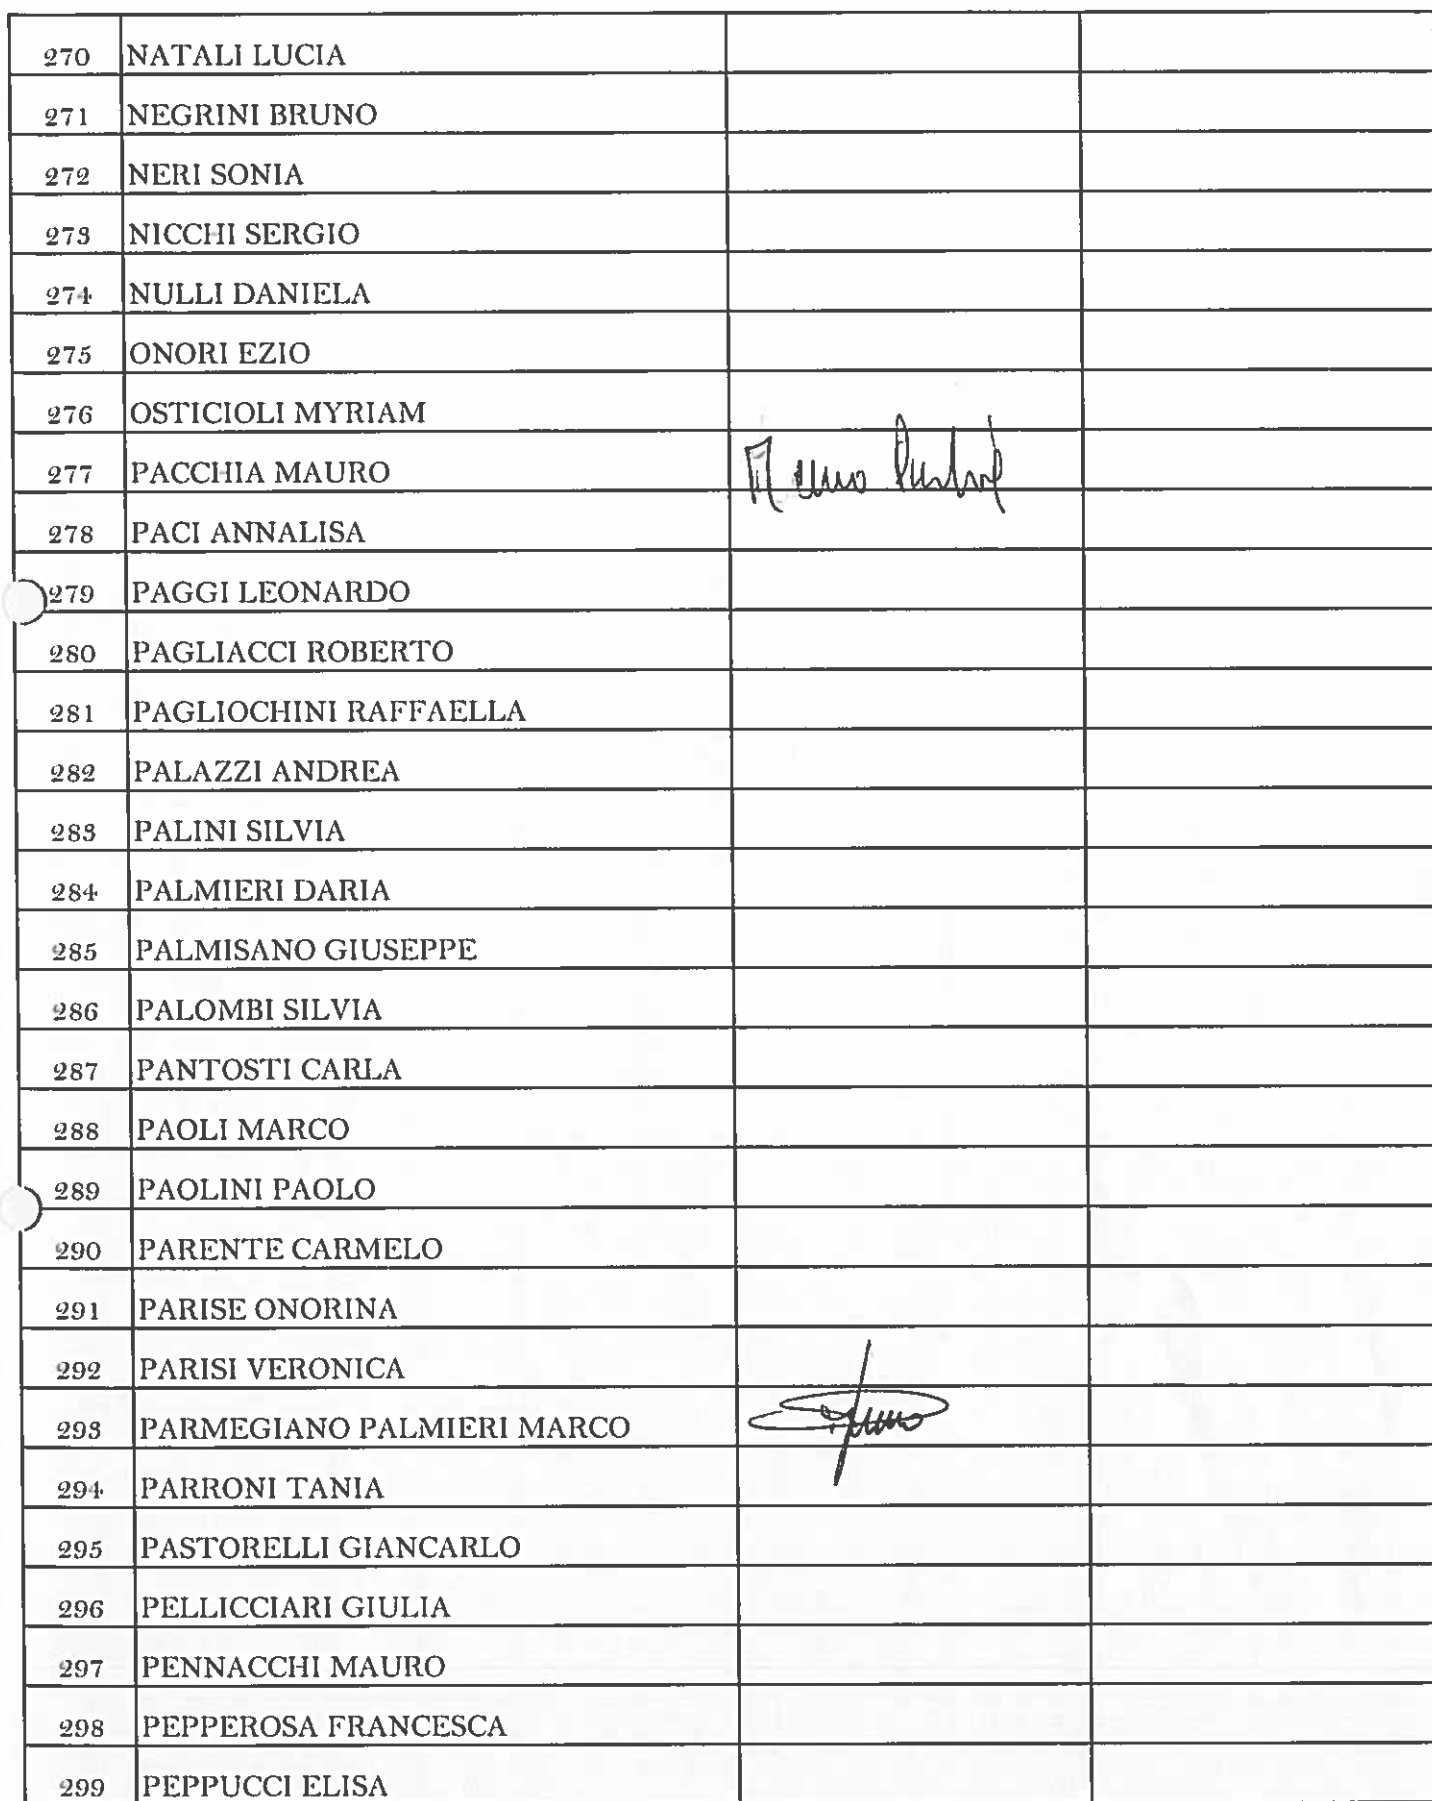 270 NATALI LUCIA
271 NEGRINI BRUNO
272 NERI SONIA
273 NICCHI SERGIO
274 NULLI DANIELA
275 ONORI EZIO
276 OSTICIOLI MYRIAM
277 PACCHIA MAURO
278 PACI ANNALISA
279 PAGGI LEONARDO
280 PAGLIACCI ROBERTO
281 PAGLIOCHINI RAFFAELLA
282 PALAZZI ANDREA
283 PALINI SILVIA
284 PALMIERI DARIA
285 PALMISANO GIUSEPPE
286 PALOMBI SILVIA
287 PANTOSTI CARLA
288 PAOLI MARCO
289 PAOLINI PAOLO
290 PARENTE CARMELO
291 PARISE ONORINA
292 PARISI VERONICA
293 PARMEGIANO PALMIERI MARCO
294 PARRONI TANIA
295 PASTORELLI GIANCARLO
296 PELLICCIARI GIULIA
297 PENNACCHI MAURO
298 PEPPEROSA FRANCESCA
299 PEPPUCCI ELISA